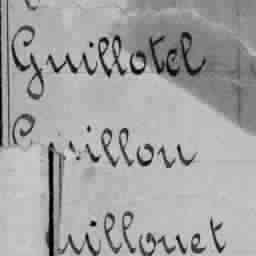 Guillotel
Guillou
uillouet